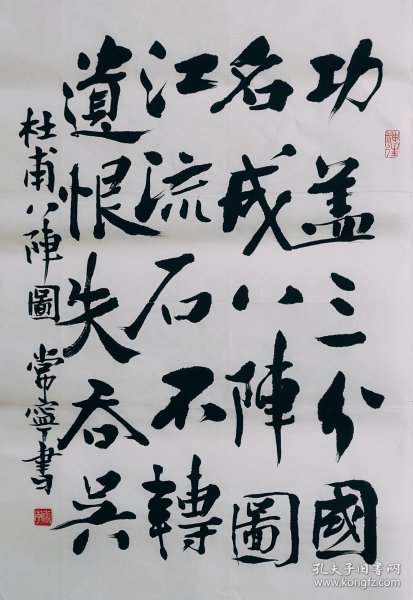 功盖三分國
名成八陣圖
江流石不轉
遺恨失吞吴
杜甫八陣圖 常寧書
孔夫子旧书网
www.kongfz.com